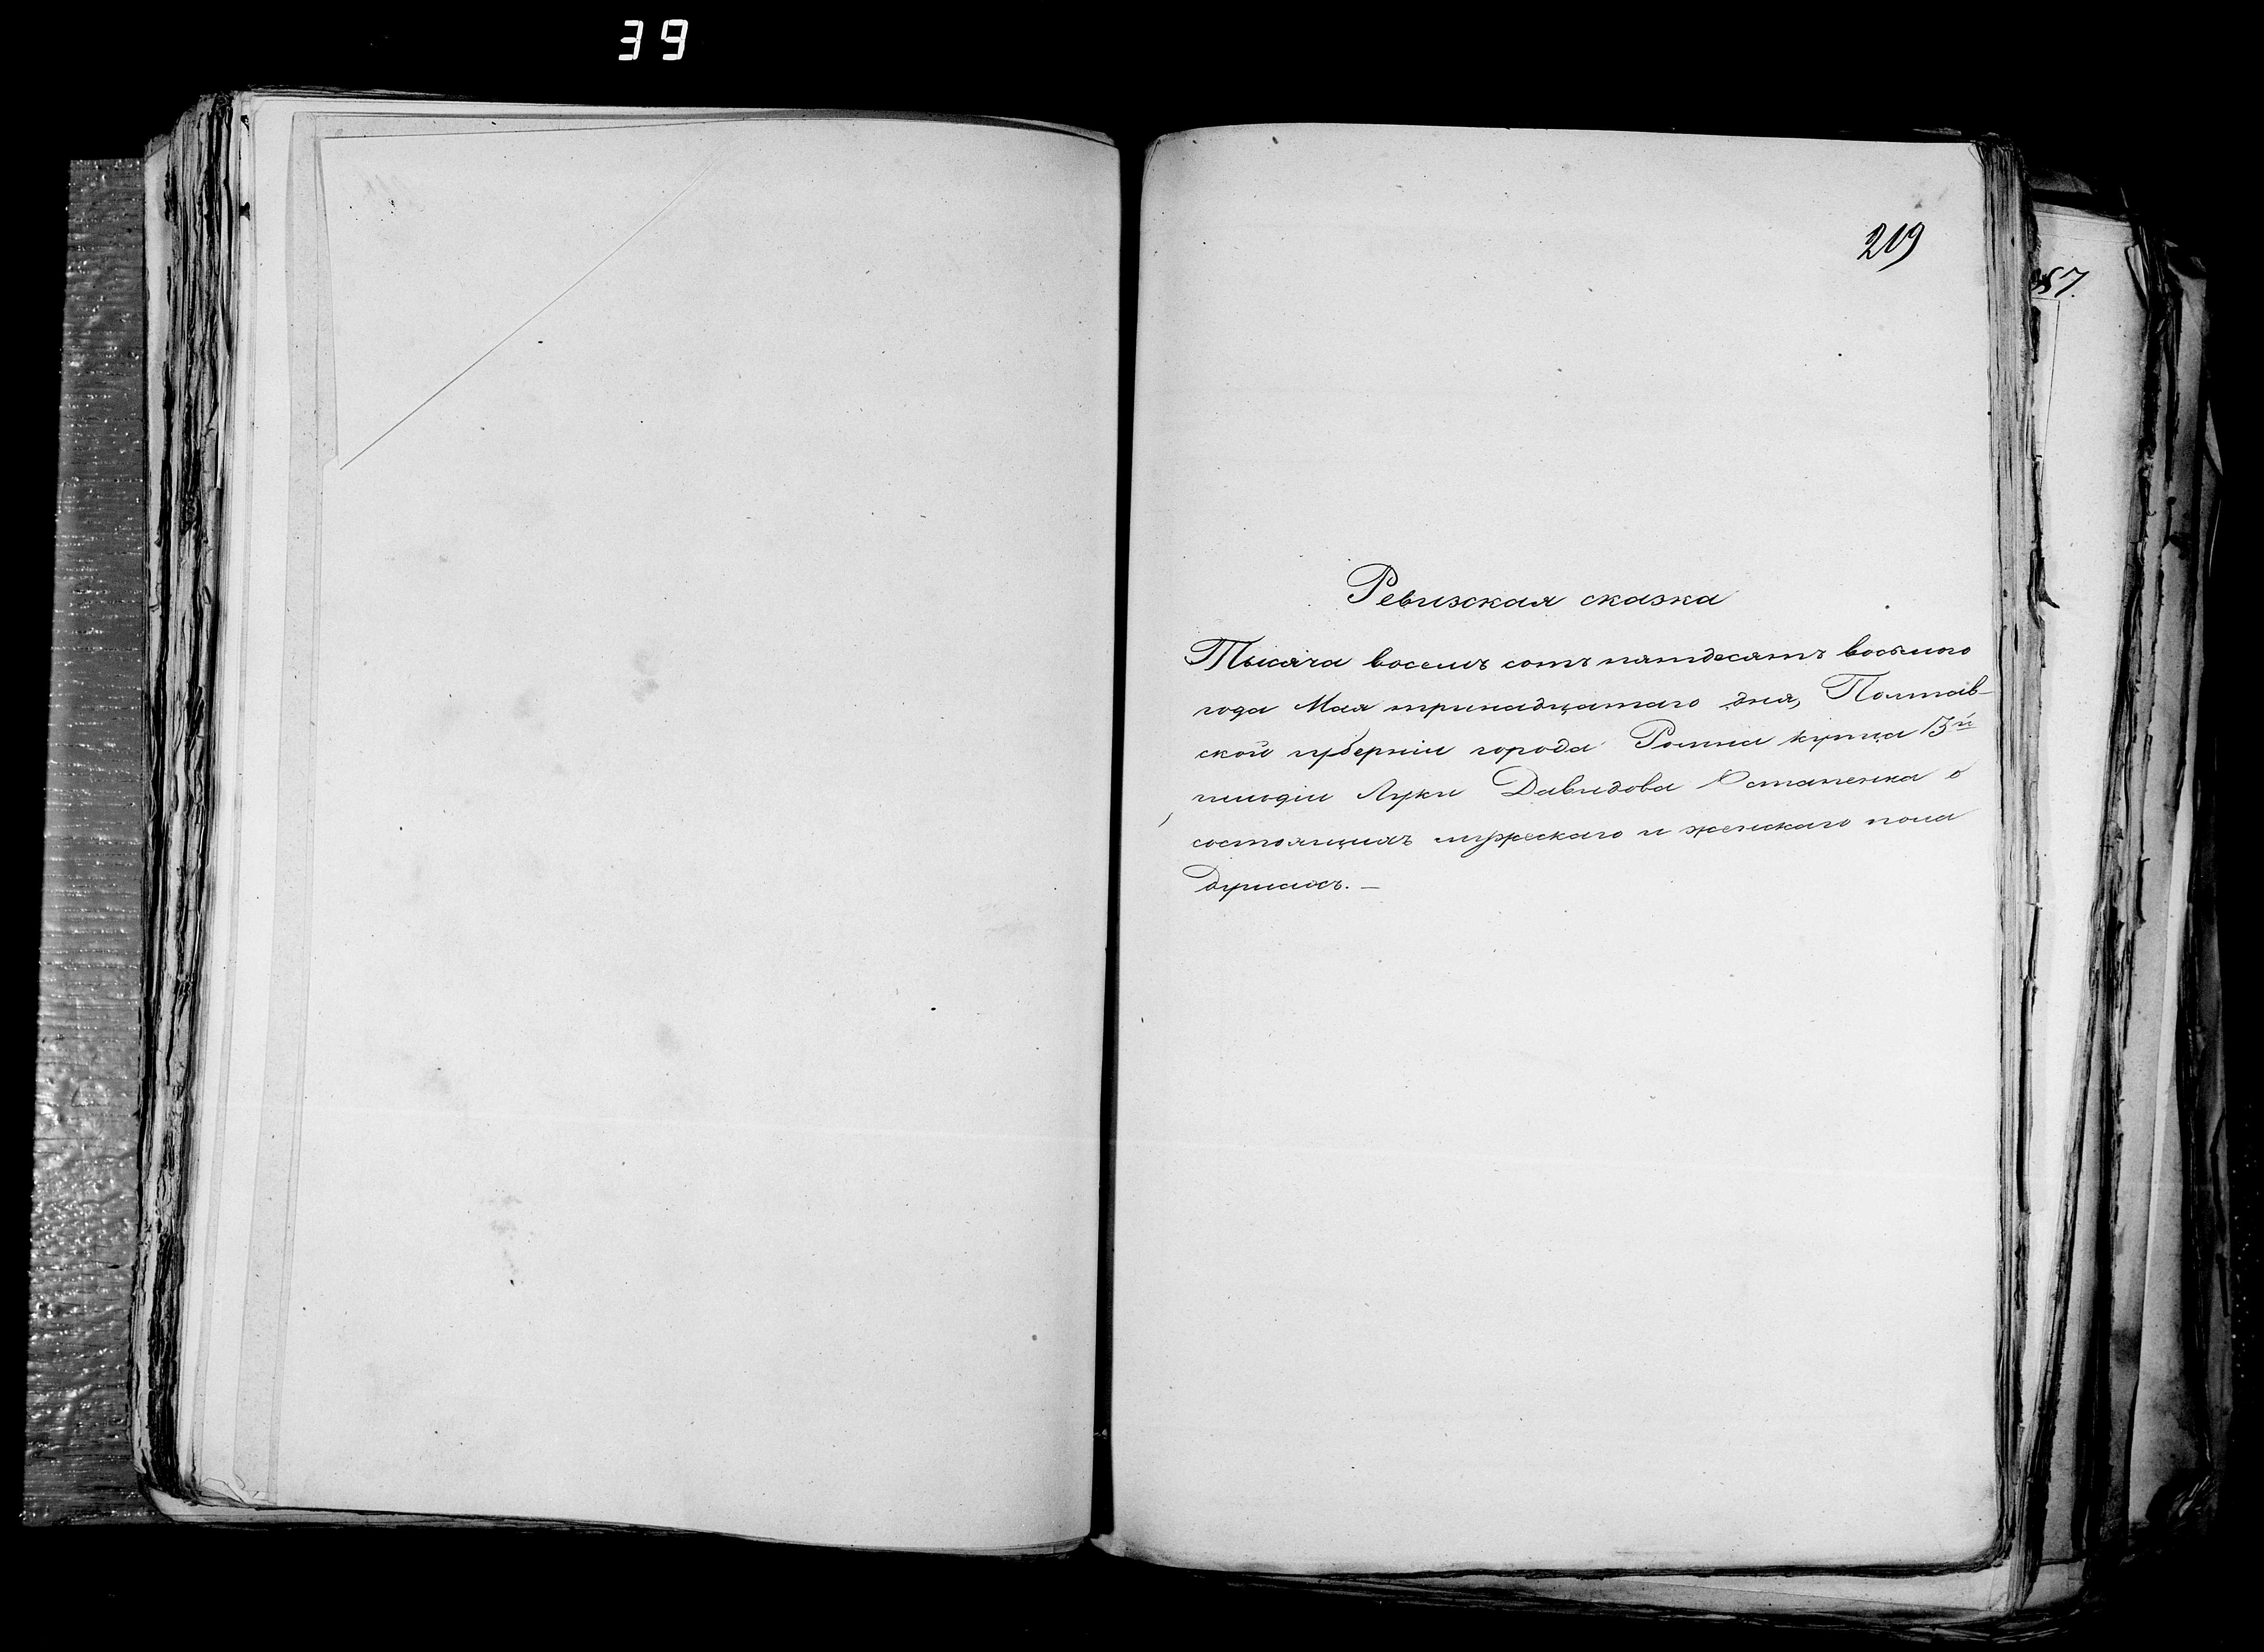 39
219
№7.
Ревизская сказка
Тысяча восемь сотъ пятьдесятъ восьмого
года Мая тринадцатаго дня, Полтав-
ской губерніи города Ромна купца 3й
гильдіи Луки Давидова Остапенка о
состоящихъ мужескаго и женскаго пола
душахъ. —